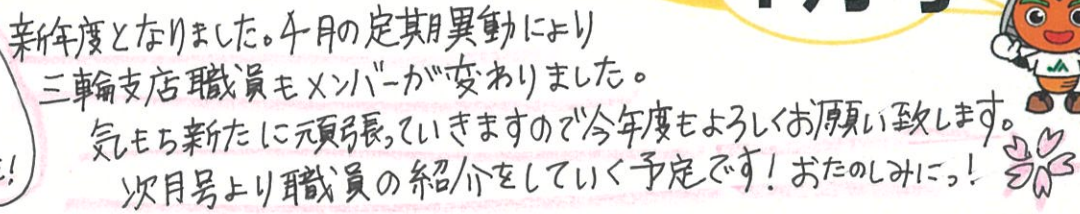 新年度となりました。4月の定期異動により
三輪支店職員もメンバーが変わりました。
気もち新たに頑張っていきますので今年度もよろしくお願い致します。
次月号より職員の紹介をしていく予定です！おたのしみにっ！
JA